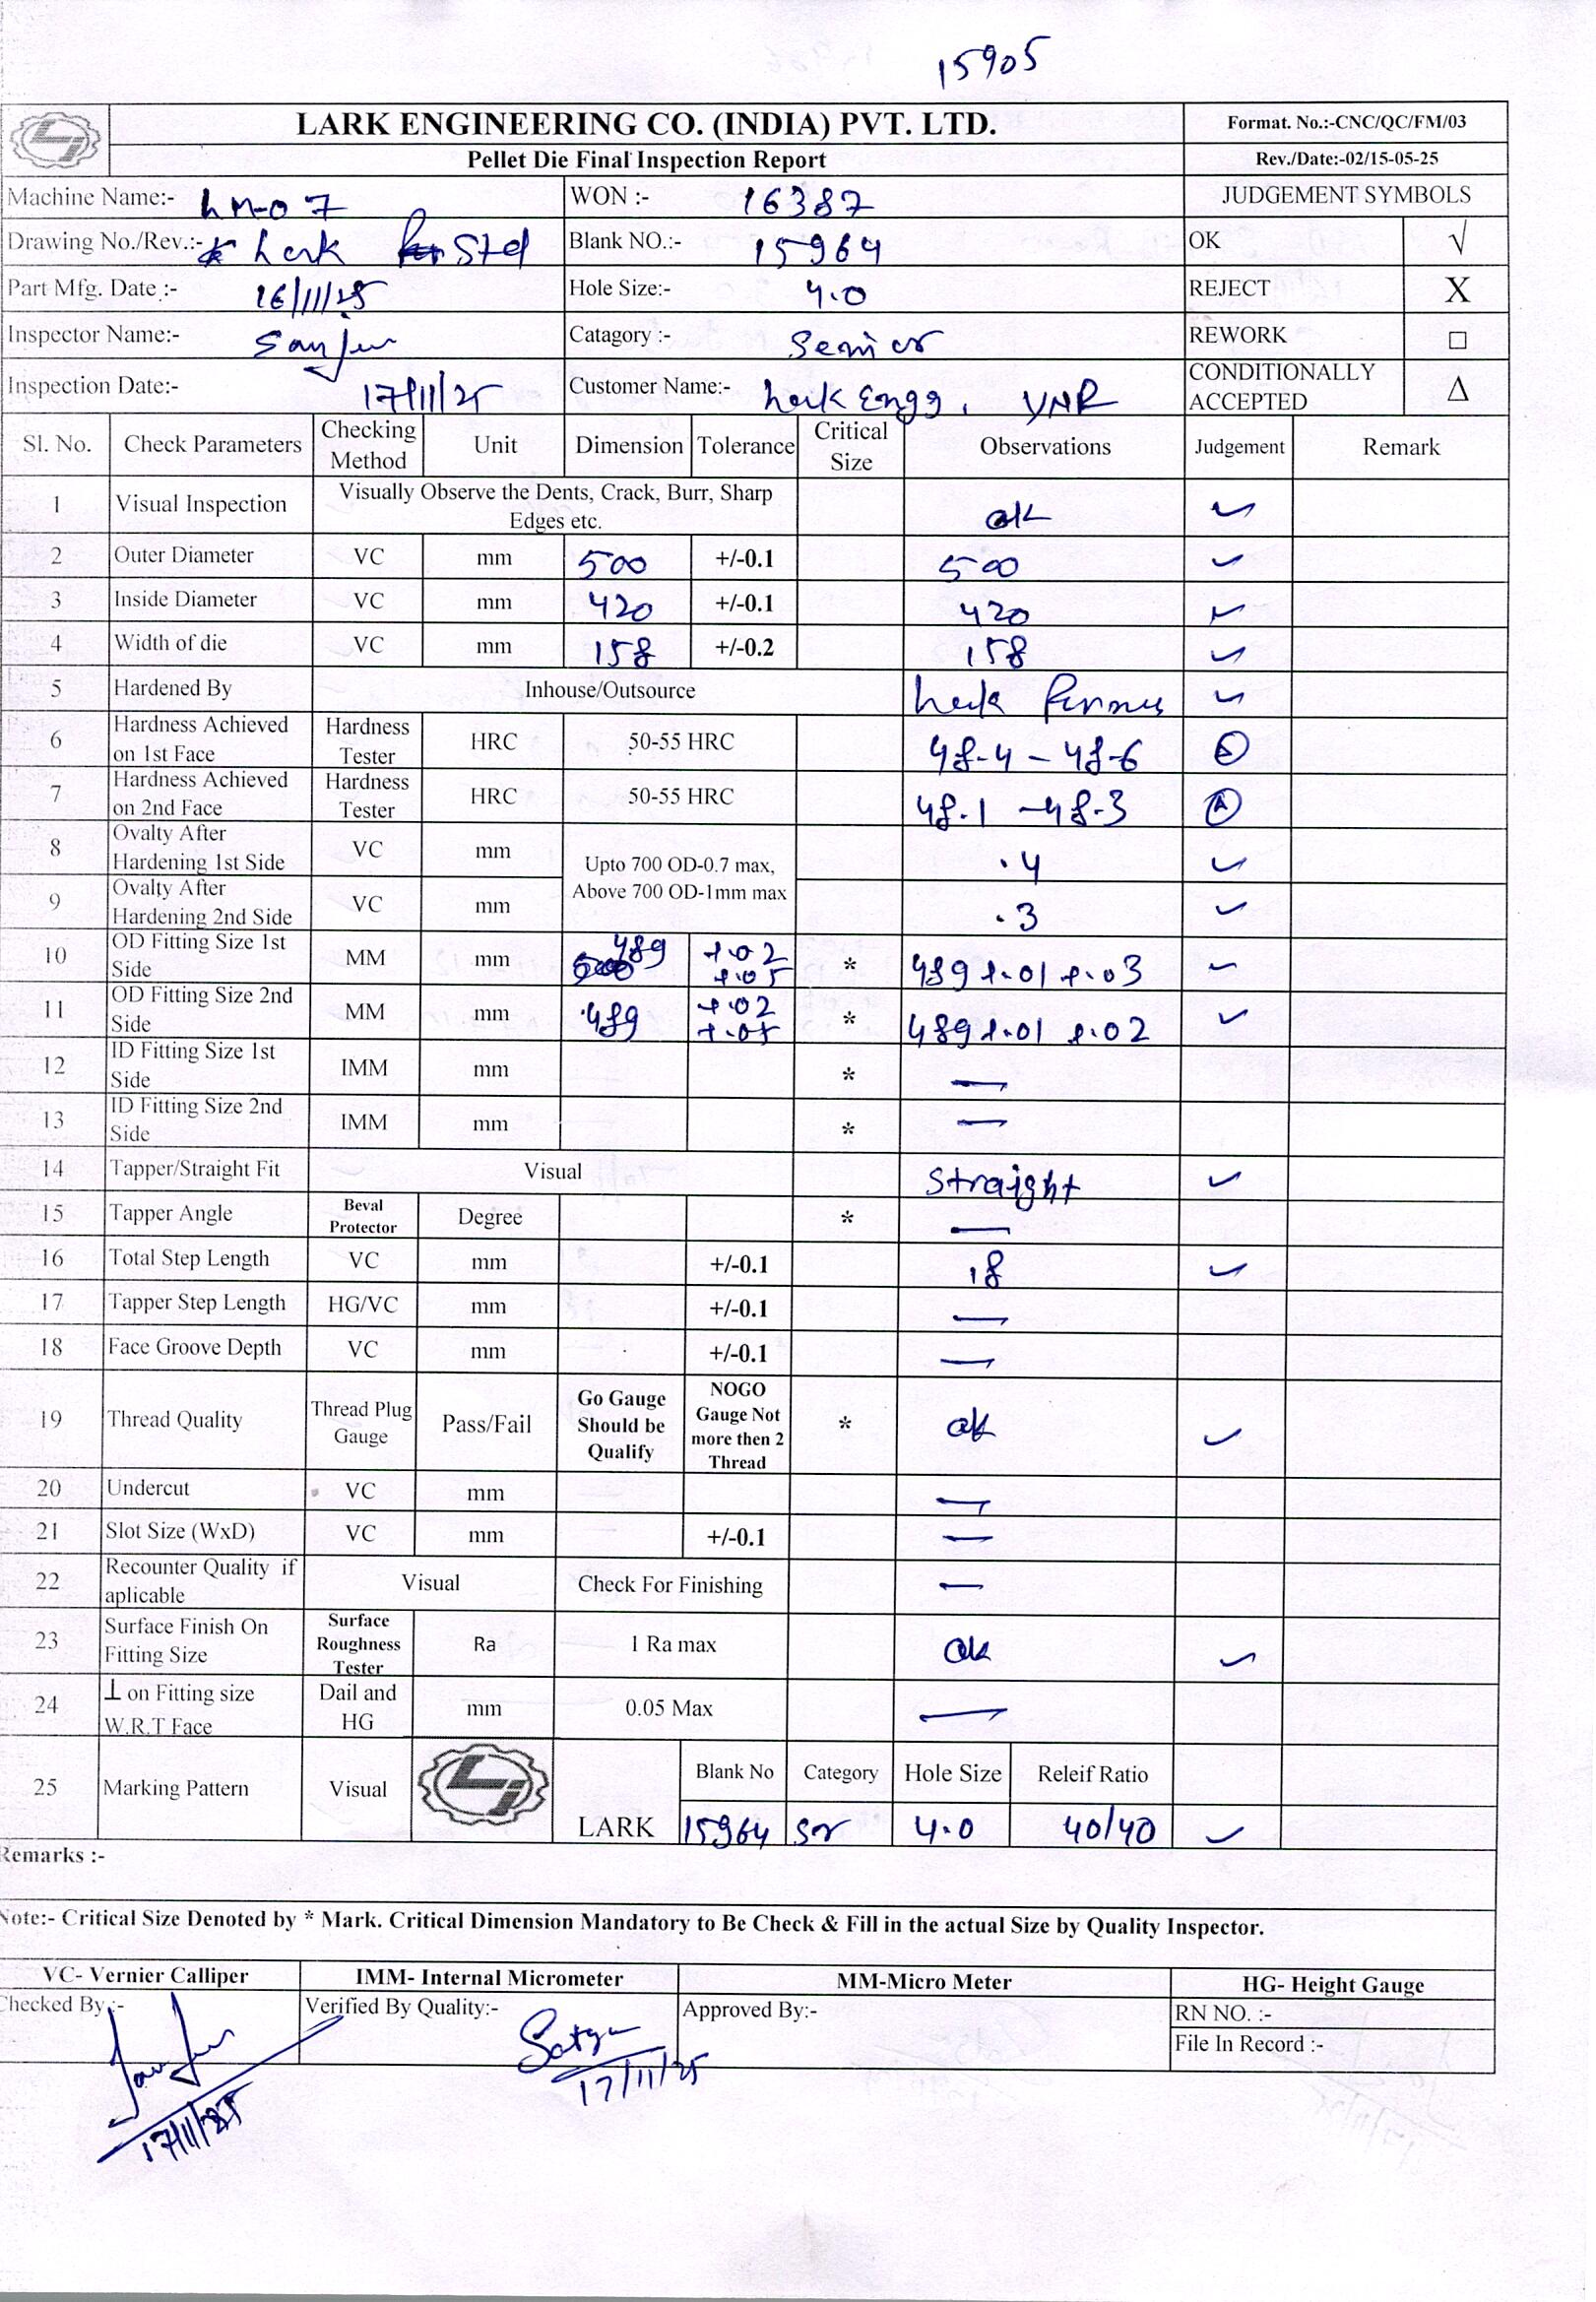 15905
LARK ENGINEERING CO. (INDIA) PVT. LTD. Format. No.:-CNC/QC/FM/03
Pellet Die Final Inspection Report Rev./Date:-02/15-05-25
Machine Name:- LM-07 WON :- 16387 JUDGEMENT SYMBOLS
Drawing No./Rev.:- Lark Std Blank NO.:- 15964 OK √
Part Mfg. Date :- 16/11/25 Hole Size:- 4.0 REJECT X
Inspector Name:- Catagory :- Senior REWORK □
Inspection Date:- 17/11/25 Customer Name:- Lark Engg. YNR CONDITIONALLY ACCEPTED Δ
Sl. No. Check Parameters Checking Method Unit Dimension Tolerance Critical Size Observations Judgement Remark
1 Visual Inspection Visually Observe the Dents, Crack, Burr, Sharp Edges etc. ok ✓
2 Outer Diameter VC mm 500 +/-0.1 500 ✓
3 Inside Diameter VC mm 420 +/-0.1 420 ✓
4 Width of die VC mm 158 +/-0.2 158 ✓
5 Hardened By Inhouse/Outsource Lark ✓
6 Hardness Achieved on 1st Face Hardness Tester HRC 50-55 HRC 48-4 - 48-6
7 Hardness Achieved on 2nd Face Hardness Tester HRC 50-55 HRC 48-1 - 48-3
8 Ovalty After Hardening 1st Side VC mm Upto 700 OD-0.7 max, Above 700 OD-1mm max .4 ✓
9 Ovalty After Hardening 2nd Side VC mm .3 ✓
10 OD Fitting Size 1st Side MM mm 489 +.02 +.05 * 489 +.01 +.03 ✓
11 OD Fitting Size 2nd Side MM mm 489 +.02 +.05 * 489 +.01 +.02 ✓
12 ID Fitting Size 1st Side IMM mm * —
13 ID Fitting Size 2nd Side IMM mm * —
14 Tapper/Straight Fit Visual Straight ✓
15 Tapper Angle Beval Protector Degree * —
16 Total Step Length VC mm +/-0.1 18 ✓
17 Tapper Step Length HG/VC mm +/-0.1 —
18 Face Groove Depth VC mm +/-0.1 —
19 Thread Quality Thread Plug Gauge Pass/Fail Go Gauge Should be Qualify NOGO Gauge Not more then 2 Thread * ok ✓
20 Undercut VC mm —
21 Slot Size (WxD) VC mm +/-0.1 —
22 Recounter Quality if aplicable Visual Check For Finishing —
23 Surface Finish On Fitting Size Surface Roughness Tester Ra 1 Ra max ok ✓
24 ⊥ on Fitting size W.R.T Face Dail and HG mm 0.05 Max —
25 Marking Pattern Visual LARK Blank No Category Hole Size Releif Ratio
15964 Sr 4.0 40/40 ✓
Remarks :-
Note:- Critical Size Denoted by * Mark. Critical Dimension Mandatory to Be Check & Fill in the actual Size by Quality Inspector.
VC- Vernier Calliper IMM- Internal Micrometer MM-Micro Meter HG- Height Gauge
Checked By :- Verified By Quality:- Satya Approved By:- RN NO. :-
File In Record :-
17/11/25 17/11/25